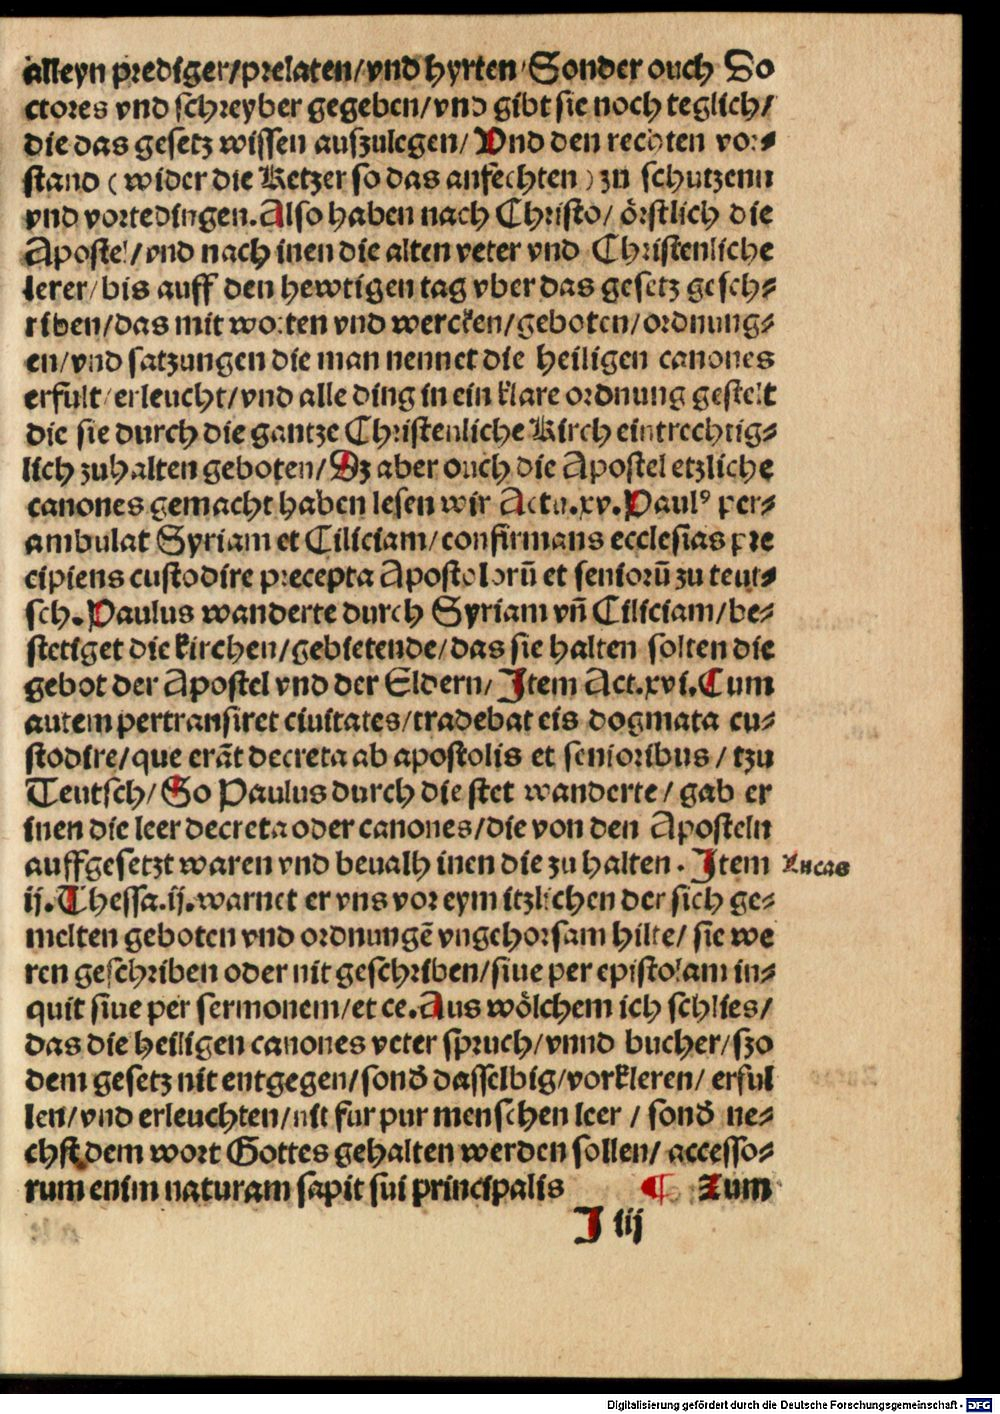 alleyn prediger/prelaten/vnd hyrten Sonder ouch Do
ctores vnd schreyber gegeben/vnd gibt sie noch teglich/
die das gesetz wissen auszulegen/ Vnd den rechten vor⸗
stand (wider die Ketzer so das anfechten) zu schutzenn
vnd vortedingen. Also haben nach Christo/ örstlich die
Apostel/vnd nach inen die alten veter vnd Christenliche
lerer/bis auff den hewtigen tag vber das gesetz gesch⸗
riben/das mit worten vnd wercken/geboten/ordnung⸗
en/vnd satzungen die man nennet die heiligen canones
erfult/erleucht/vnd alle ding in ein klare ordnung gestelt
die sie durch die gantze Christenliche Kirch eintrechtig⸗
lich zuhalten geboten/Dz aber ouch die Apostel etzliche
canones gemacht haben lesen wir Actu.xv.Paulꝰ per⸗
ambulat Syriam et Ciliciam/confirmans ecclesias pre
cipiens custodire precepta Apostolorū et seniorū zu teut⸗
sch. Paulus wanderte durch Syriam vñ Ciliciam/be⸗
stetiget die kirchen/gebietende/das sie halten solten die
gebot der Apostel vnd der Eldern/ Item Act.xvi.Cum
autem pertransiret ciuitates/tradebat eis dogmata cu⸗
stodire/que erāt decreta ab apostolis et senioribus/tzu
Teutsch/ So Paulus durch die stet wanderte/ gab er
inen die leer decreta oder canones/die von den Aposteln
auffgesetzt waren vnd beualh inen die zu halten. Item
Lucas
ij.Thessa.ij.warnet er vns vor eym itzlichen der sich ge⸗
melten geboten vnd ordnungē vngehorsam hilte/ sie we
ren geschriben oder nit geschriben/siue per epistolam in⸗
quit siue per sermonem/et ce.Aus wölchem ich schlies/
das die heiligen canones veter spruch/vnnd bucher/szo
dem gesetz nit entgegen/sonđ dasselbig/vorkleren/ erful
len/vnd erleuchten/nit fur pur menschen leer / sonđ ne⸗
chst dem wort Gottes gehalten werden sollen/ accesso⸗
rum enim naturam sapit sui principalis ¶ Zum
J iij
Digitalisierung gefördert durch die Deutsche Forschungsgemeinschaft - DFG